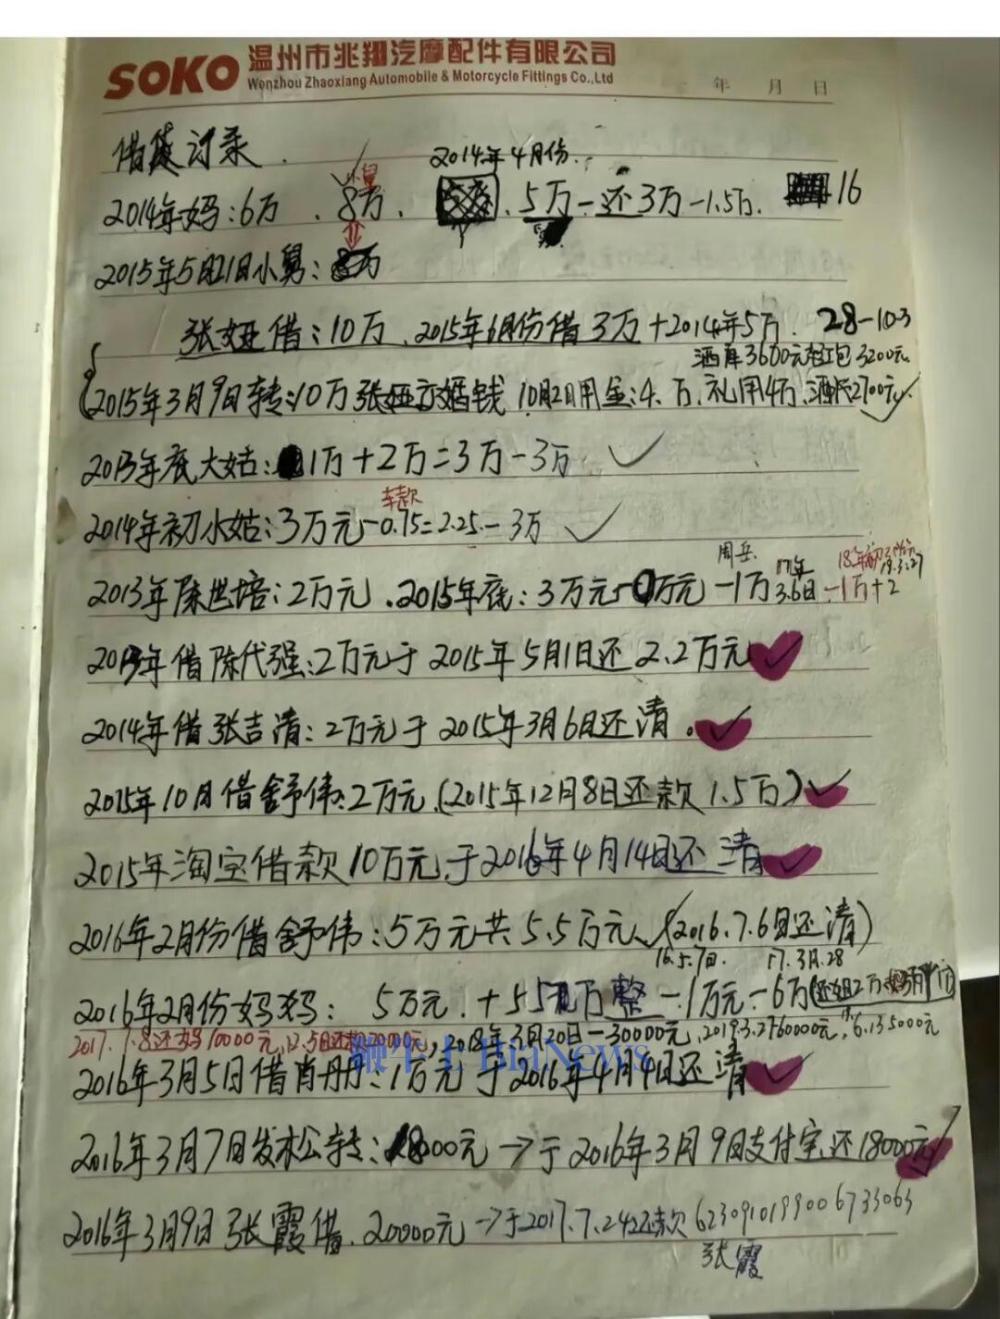 SOKO 温州市兆翔汽摩配件有限公司
Wenzhou Zhaoxiang Automobile & Motorcycle Fittings Co.,Ltd
年 月 日
借贷记录.
2014年4月份.
2014年妈:6万 . 8万. . 5万-还3万-1.5万. 16
2015年5月21日小舅:
张娅借:10万.2015年6月份借3万+2014年5万. 28-10.3
酒席3600元红包3200元
2015年3月9日转:10万张娅 婚钱 10月2日用金:4.万.礼用4万.酒 2700元
2013年底大姑: 1万+2万=3万-3万 ✓
车款
2014年初小姑:3万元-0.75=2.25-3万 ✓
周岳. 17年 18年初
19.3.27
2013年陈世培:2万元.2015年底:3万元- 万元-1万 3.6日-1万+2
2013年借陈代强:2万元于2015年5月1日还2.2万元✓
2014年借张吉清:2万元于2015年3月6日还清.✓
2015年10月借舒伟:2万元.(2015年12月8日还款1.5万)✓
2015年淘宝借款10万元.于2016年4月14日还清✓
2016年2月份借舒伟:5万元共5.5万元✓(2016.7.6日还清)
16.5.7日. 17.3月.28
2016年2月份妈妈: 5万元.+5 万整-1万元-6万(还姐2万
2017.7.8还妈10000元,12.5日还款20000元,2018年3月20日-30000元,2019.3.27 60000元,6.13 5000元
鞭牛士 BiaNews
2016年3月5日借肖丹丹:1万元于2016年4月4日还清✓
2016年3月7日发松公转:18000元→于2016年3月9日支付宝还18000元✓
2016年3月9日张霞借.20000元→于2017.7.24还款6230910199006733063
张霞